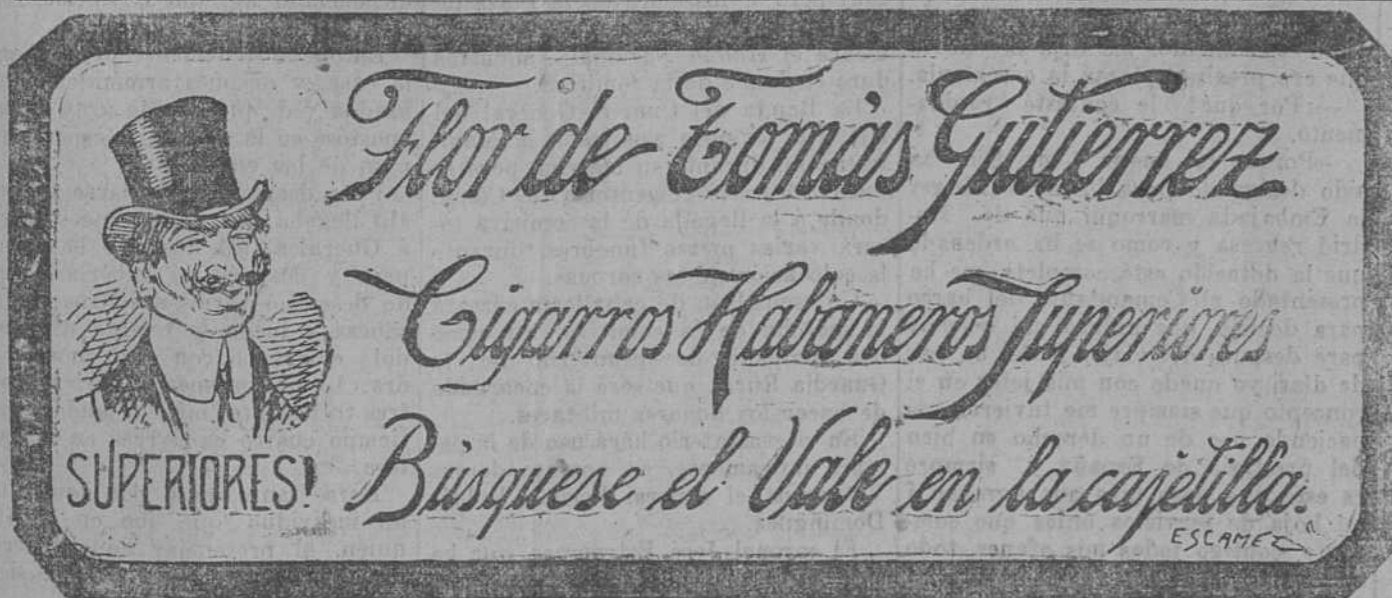 Flor de Tomás Gutierrez
Cigarros Habaneros Superiores
Búsquese el Vale en la cajetilla.
SUPERIORES!
ESCAMEZ